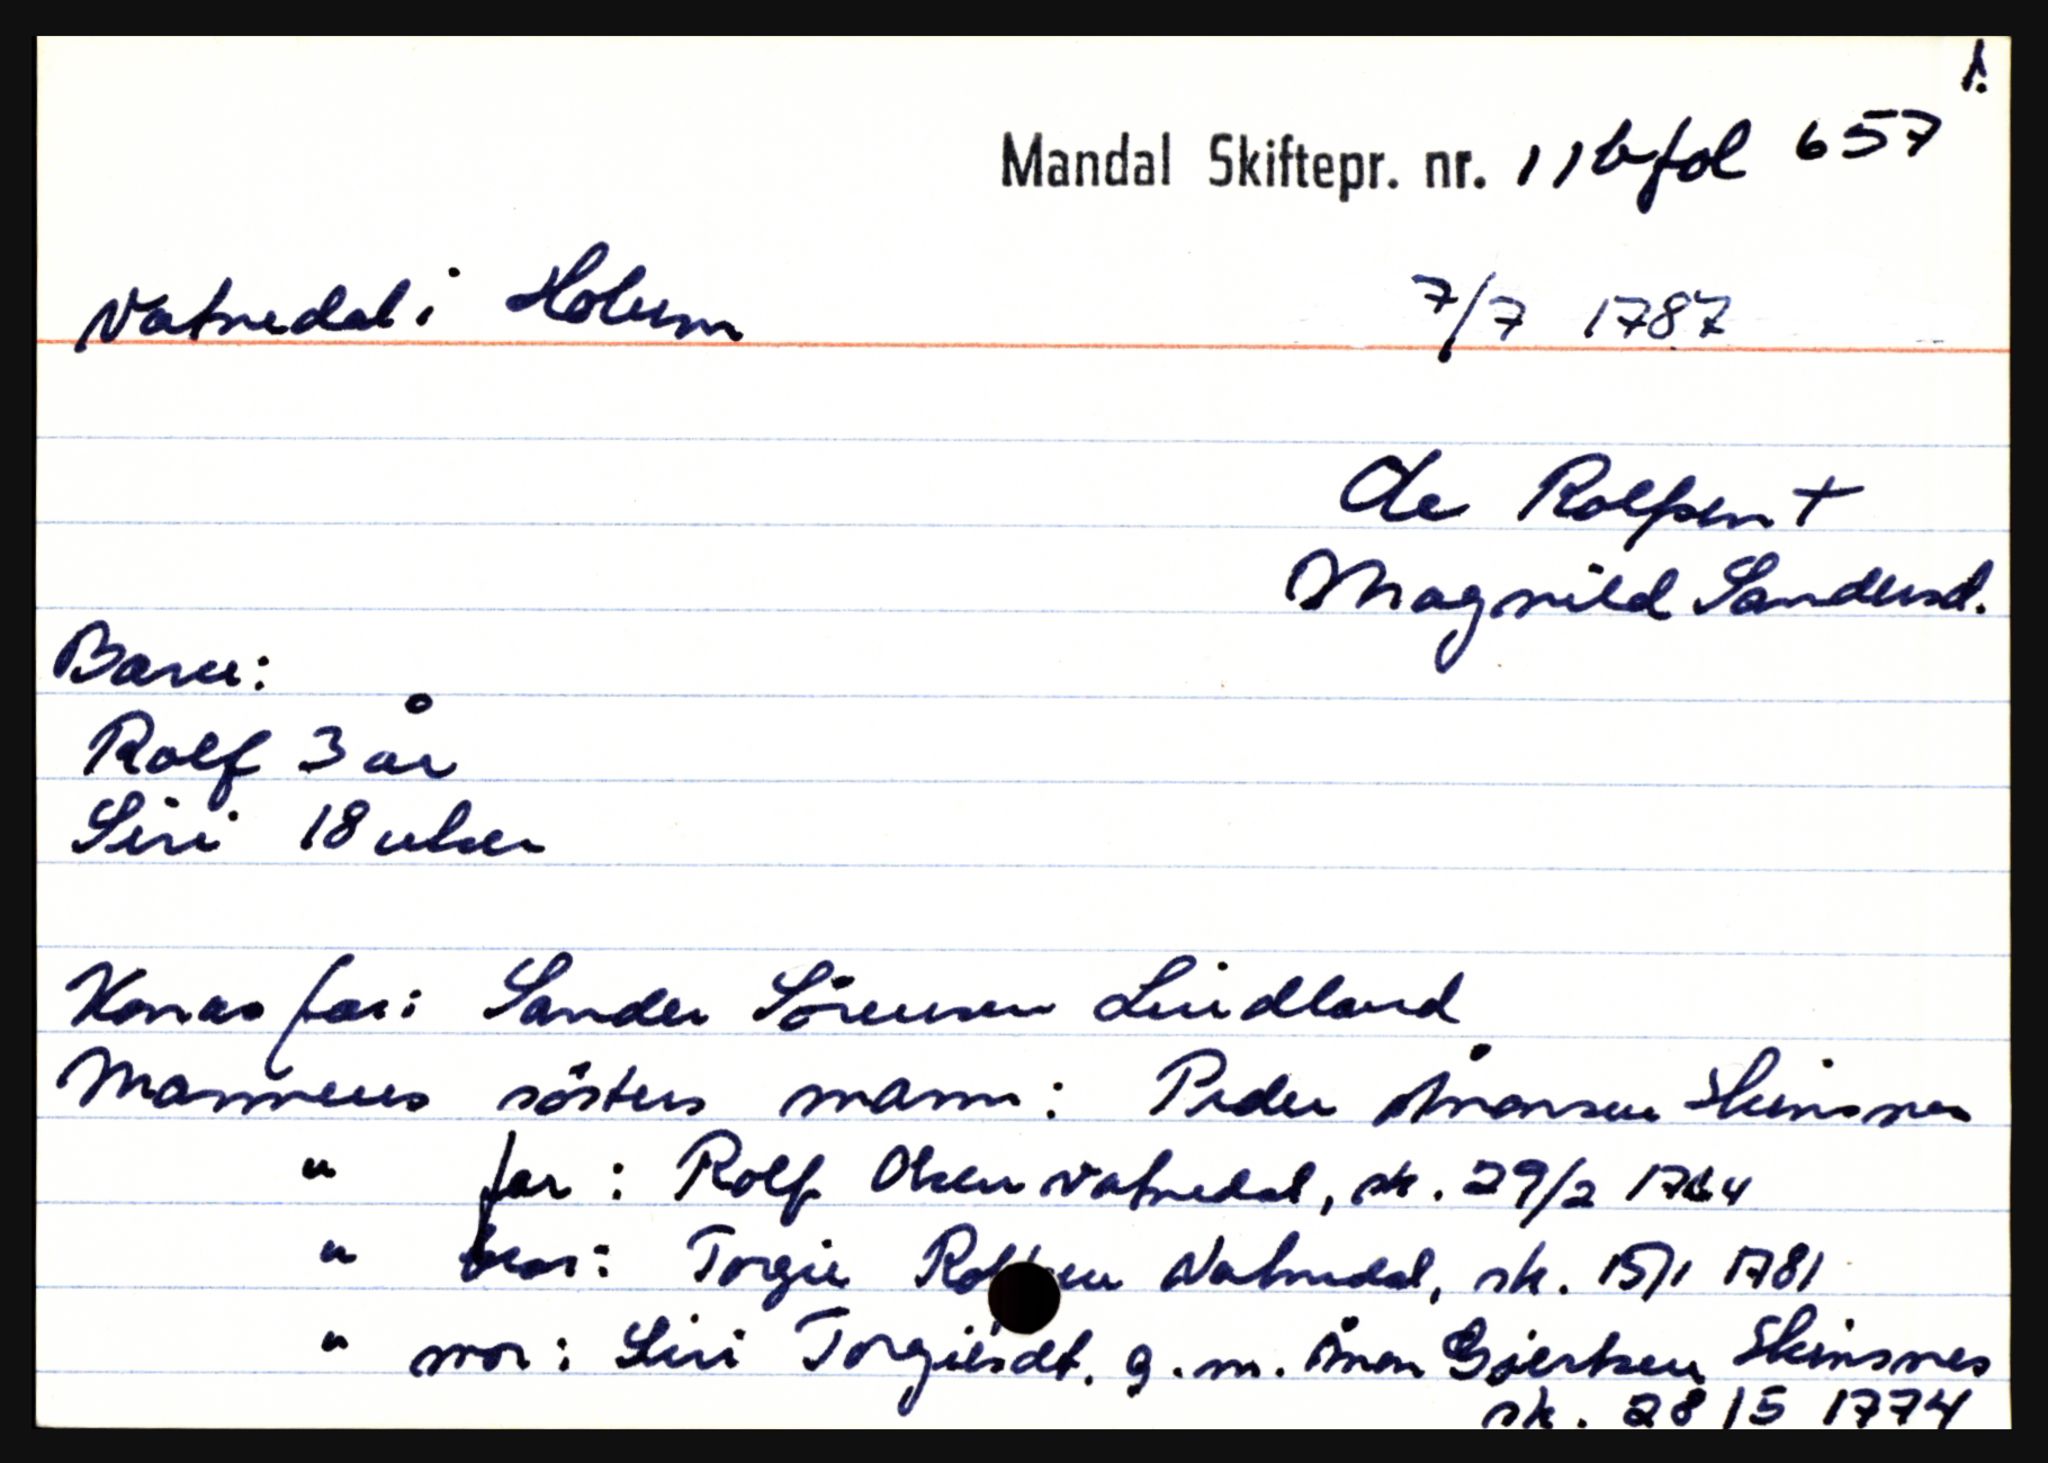 1.
Mandal Skiftepr. nr. 11b fol 657
Vatnedal i Holum 7/7 1787
Ole Rolfsen +
Magnild Sandersd.
Barn:
Rolf 3 år
Siri 18 uker
Konas far: Sander Sörensen Lindland
Mannens sösters mann: Peder Ånonsen Skinsnes
" far: Rolf Olsen Vatnedal, sk. 29/2 1764
" bror: Torgie Rolfsen Vatnedal, sk. 15/1 1781
" mor: Siri Torgiesdt. g. m. Ånon Gjertsen Skinsnes
sk. 28/5 1774